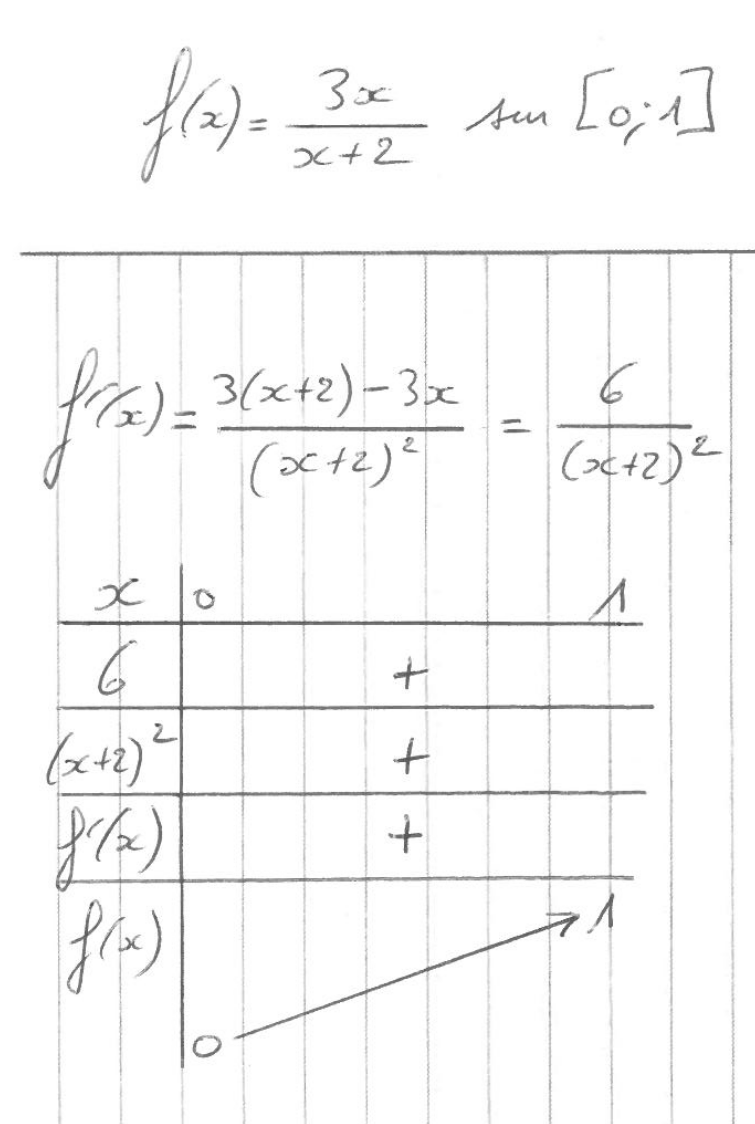 f(x) = 3x / (x+2) sur [0;1]
f'(x) = (3(x+2) - 3x) / (x+2)² = 6 / (x+2)²
x 0 1
6 +
(x+2)² +
f'(x) +
f(x) 0 1